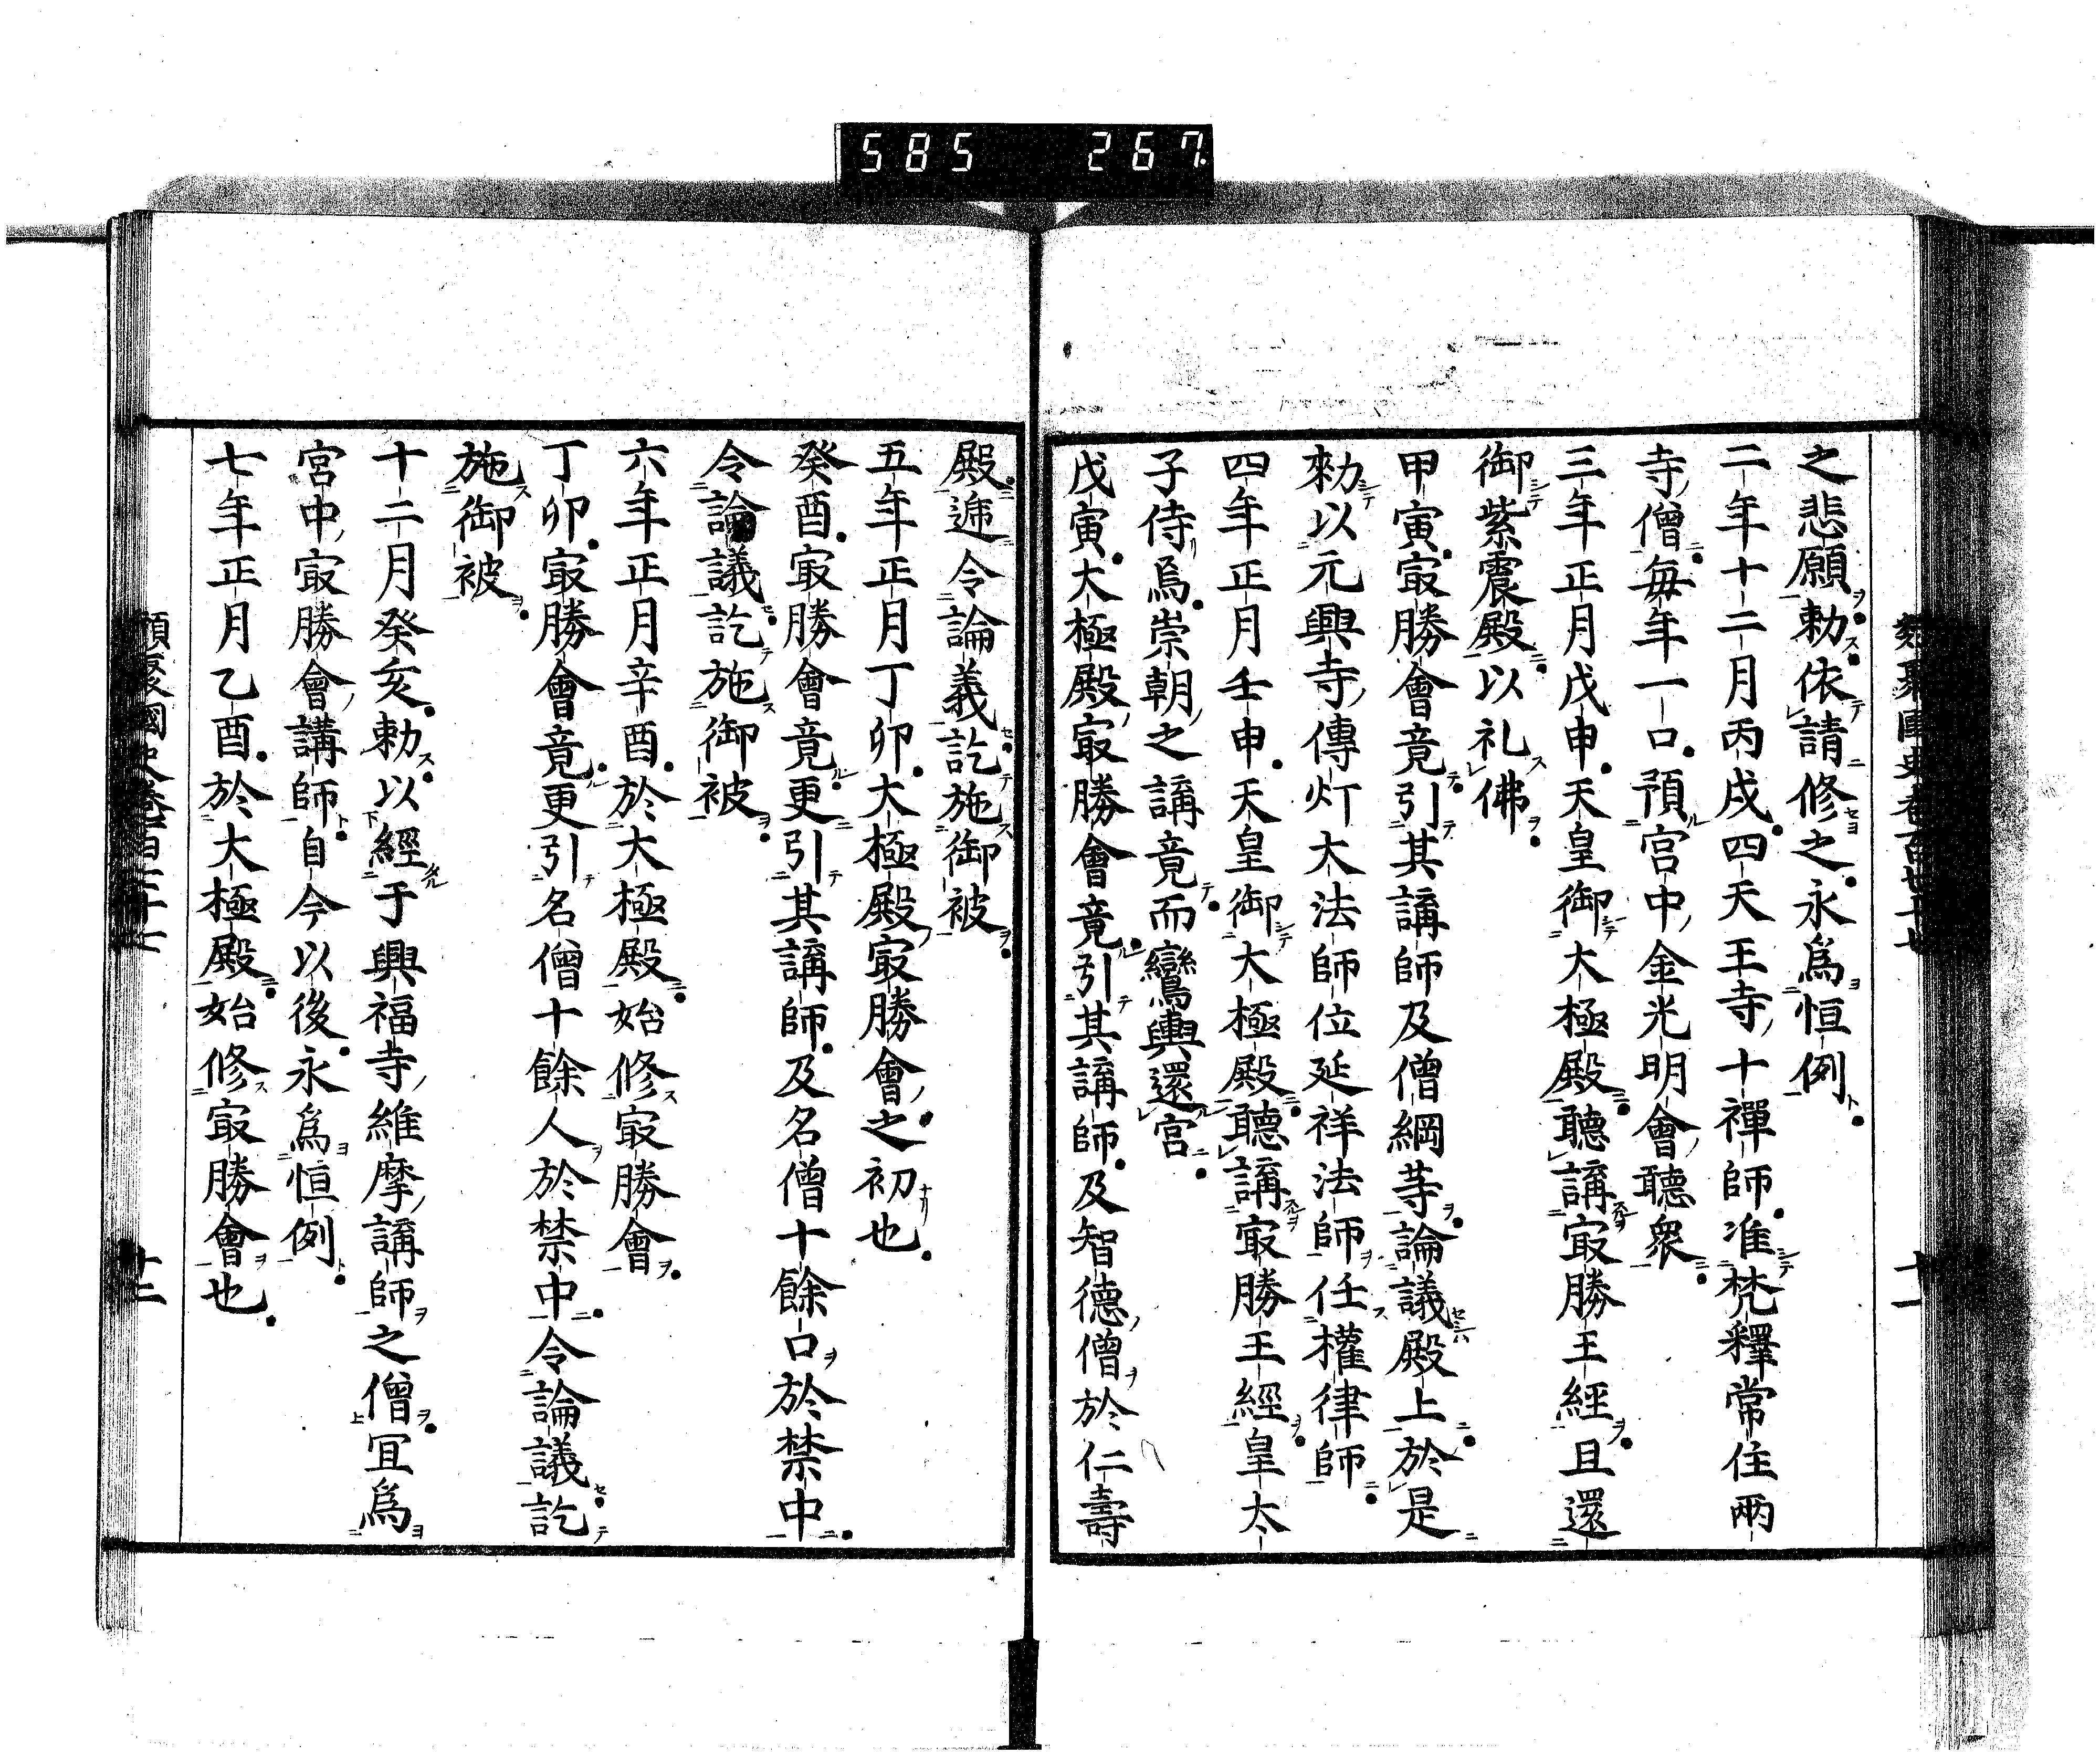 585 267.
之悲願勅依請修之永爲恒例
二年十二月丙戌四天王寺十禪師准梵釋常住兩
寺僧毎年一口預宮中金光明會聽衆
三年正月戊申天皇御大極殿聽講㝡勝王経且還
御紫震殿以礼佛
甲寅㝡勝會竟引其講師及僧綱䓁論議殿上於是
勅以元興寺傳灯大法師位延祥法師任權律師
四年正月壬申天皇御大極殿聽講㝡勝王經皇太
子侍焉崇朝之講竟而鸞輿還宮
戊寅大極殿㝡勝會竟引其講師及智德僧於仁壽
殿逓令論義訖施御被
五年正月丁卯大極殿㝡勝會之初也
癸酉㝡勝會竟更引其講師及名僧十餘口於禁中
令論議訖施御被
六年正月辛酉於大極殿始修㝡勝會
丁卯㝡勝會竟更引名僧十餘人於禁中令論議訖
施御被
十二月癸亥勅以經于興福寺維摩講師之僧冝爲
宮中㝡勝會講師自今以後永爲恒例
七年正月乙酉於大極殿始修㝡勝會也